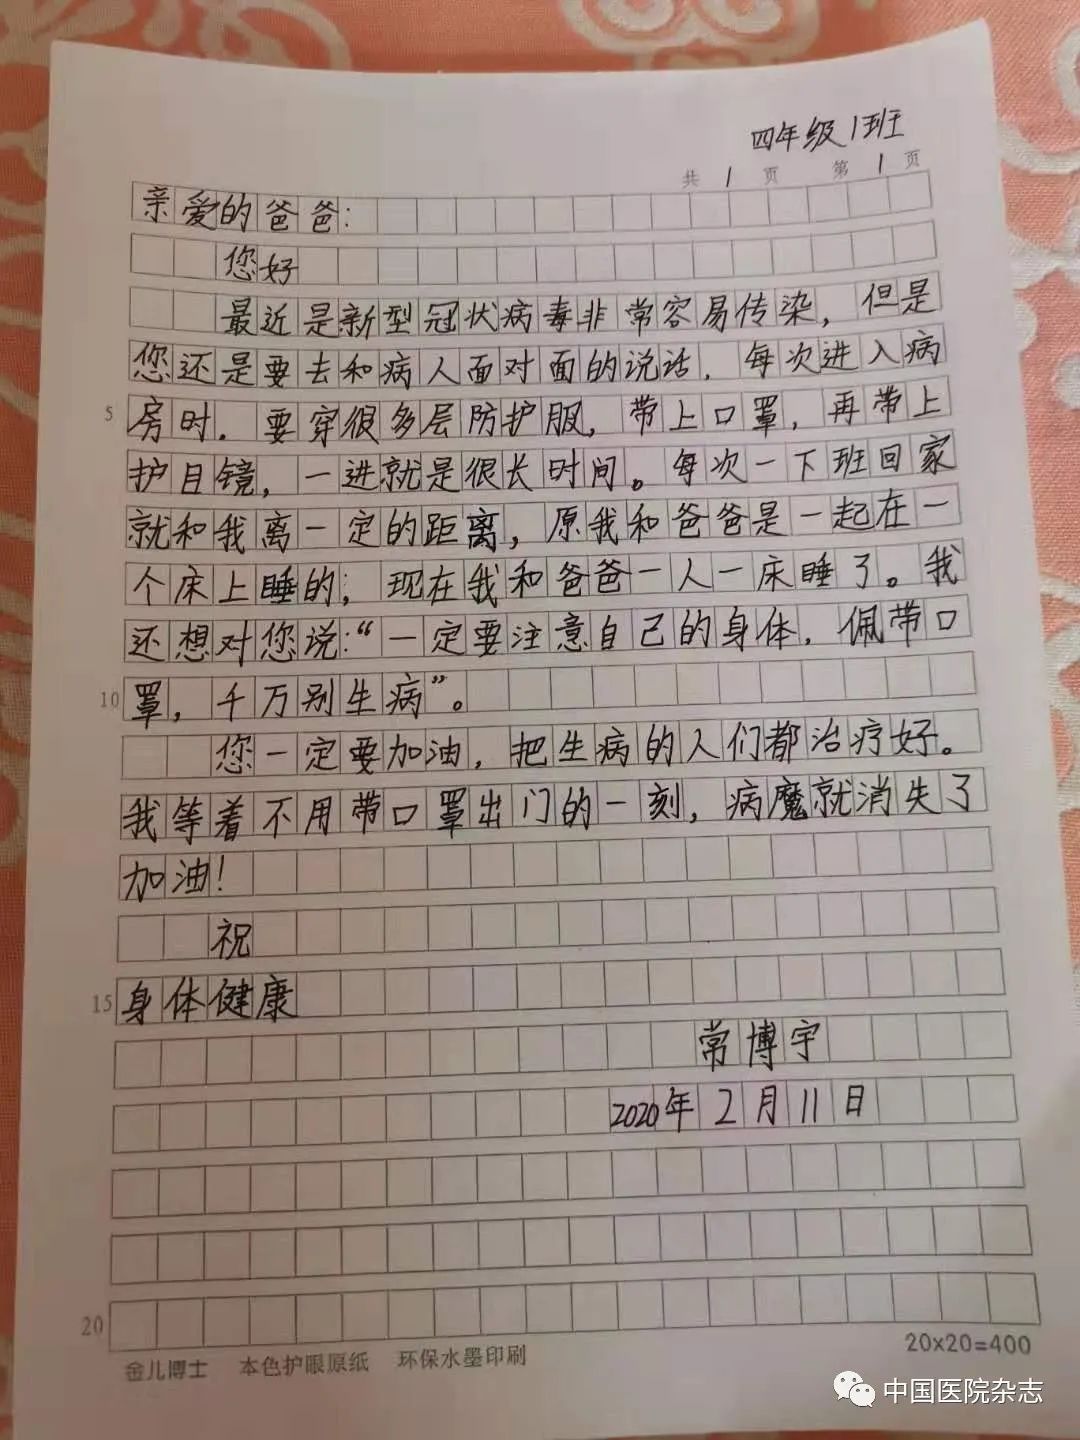 四年级1班
共 1 页 第 1 页
亲爱的爸爸:
您好
最近是新型冠状病毒非常容易传染，但是
您还是要去和病人面对面的说话．每次进入病
5 房时．要穿很多层防护服，带上口罩，再带上
护目镜，一进就是很长时间。每次一下班回家
就和我离一定的距离，原我和爸爸是一起在一
个床上睡的；现在我和爸爸一人一床睡了。我
还想对您说:“一定要注意自己的身体．佩带口
10 罩，千万别生病”。
您一定要加油，把生病的人们都治疗好。
我等着不用带口罩出门的一刻，病魔就消失了
加油！
祝
15 身体健康
常博宇
2020年2月11日
20
金儿博士 本色护眼原纸 环保水墨印刷 20×20=400
中国医院杂志